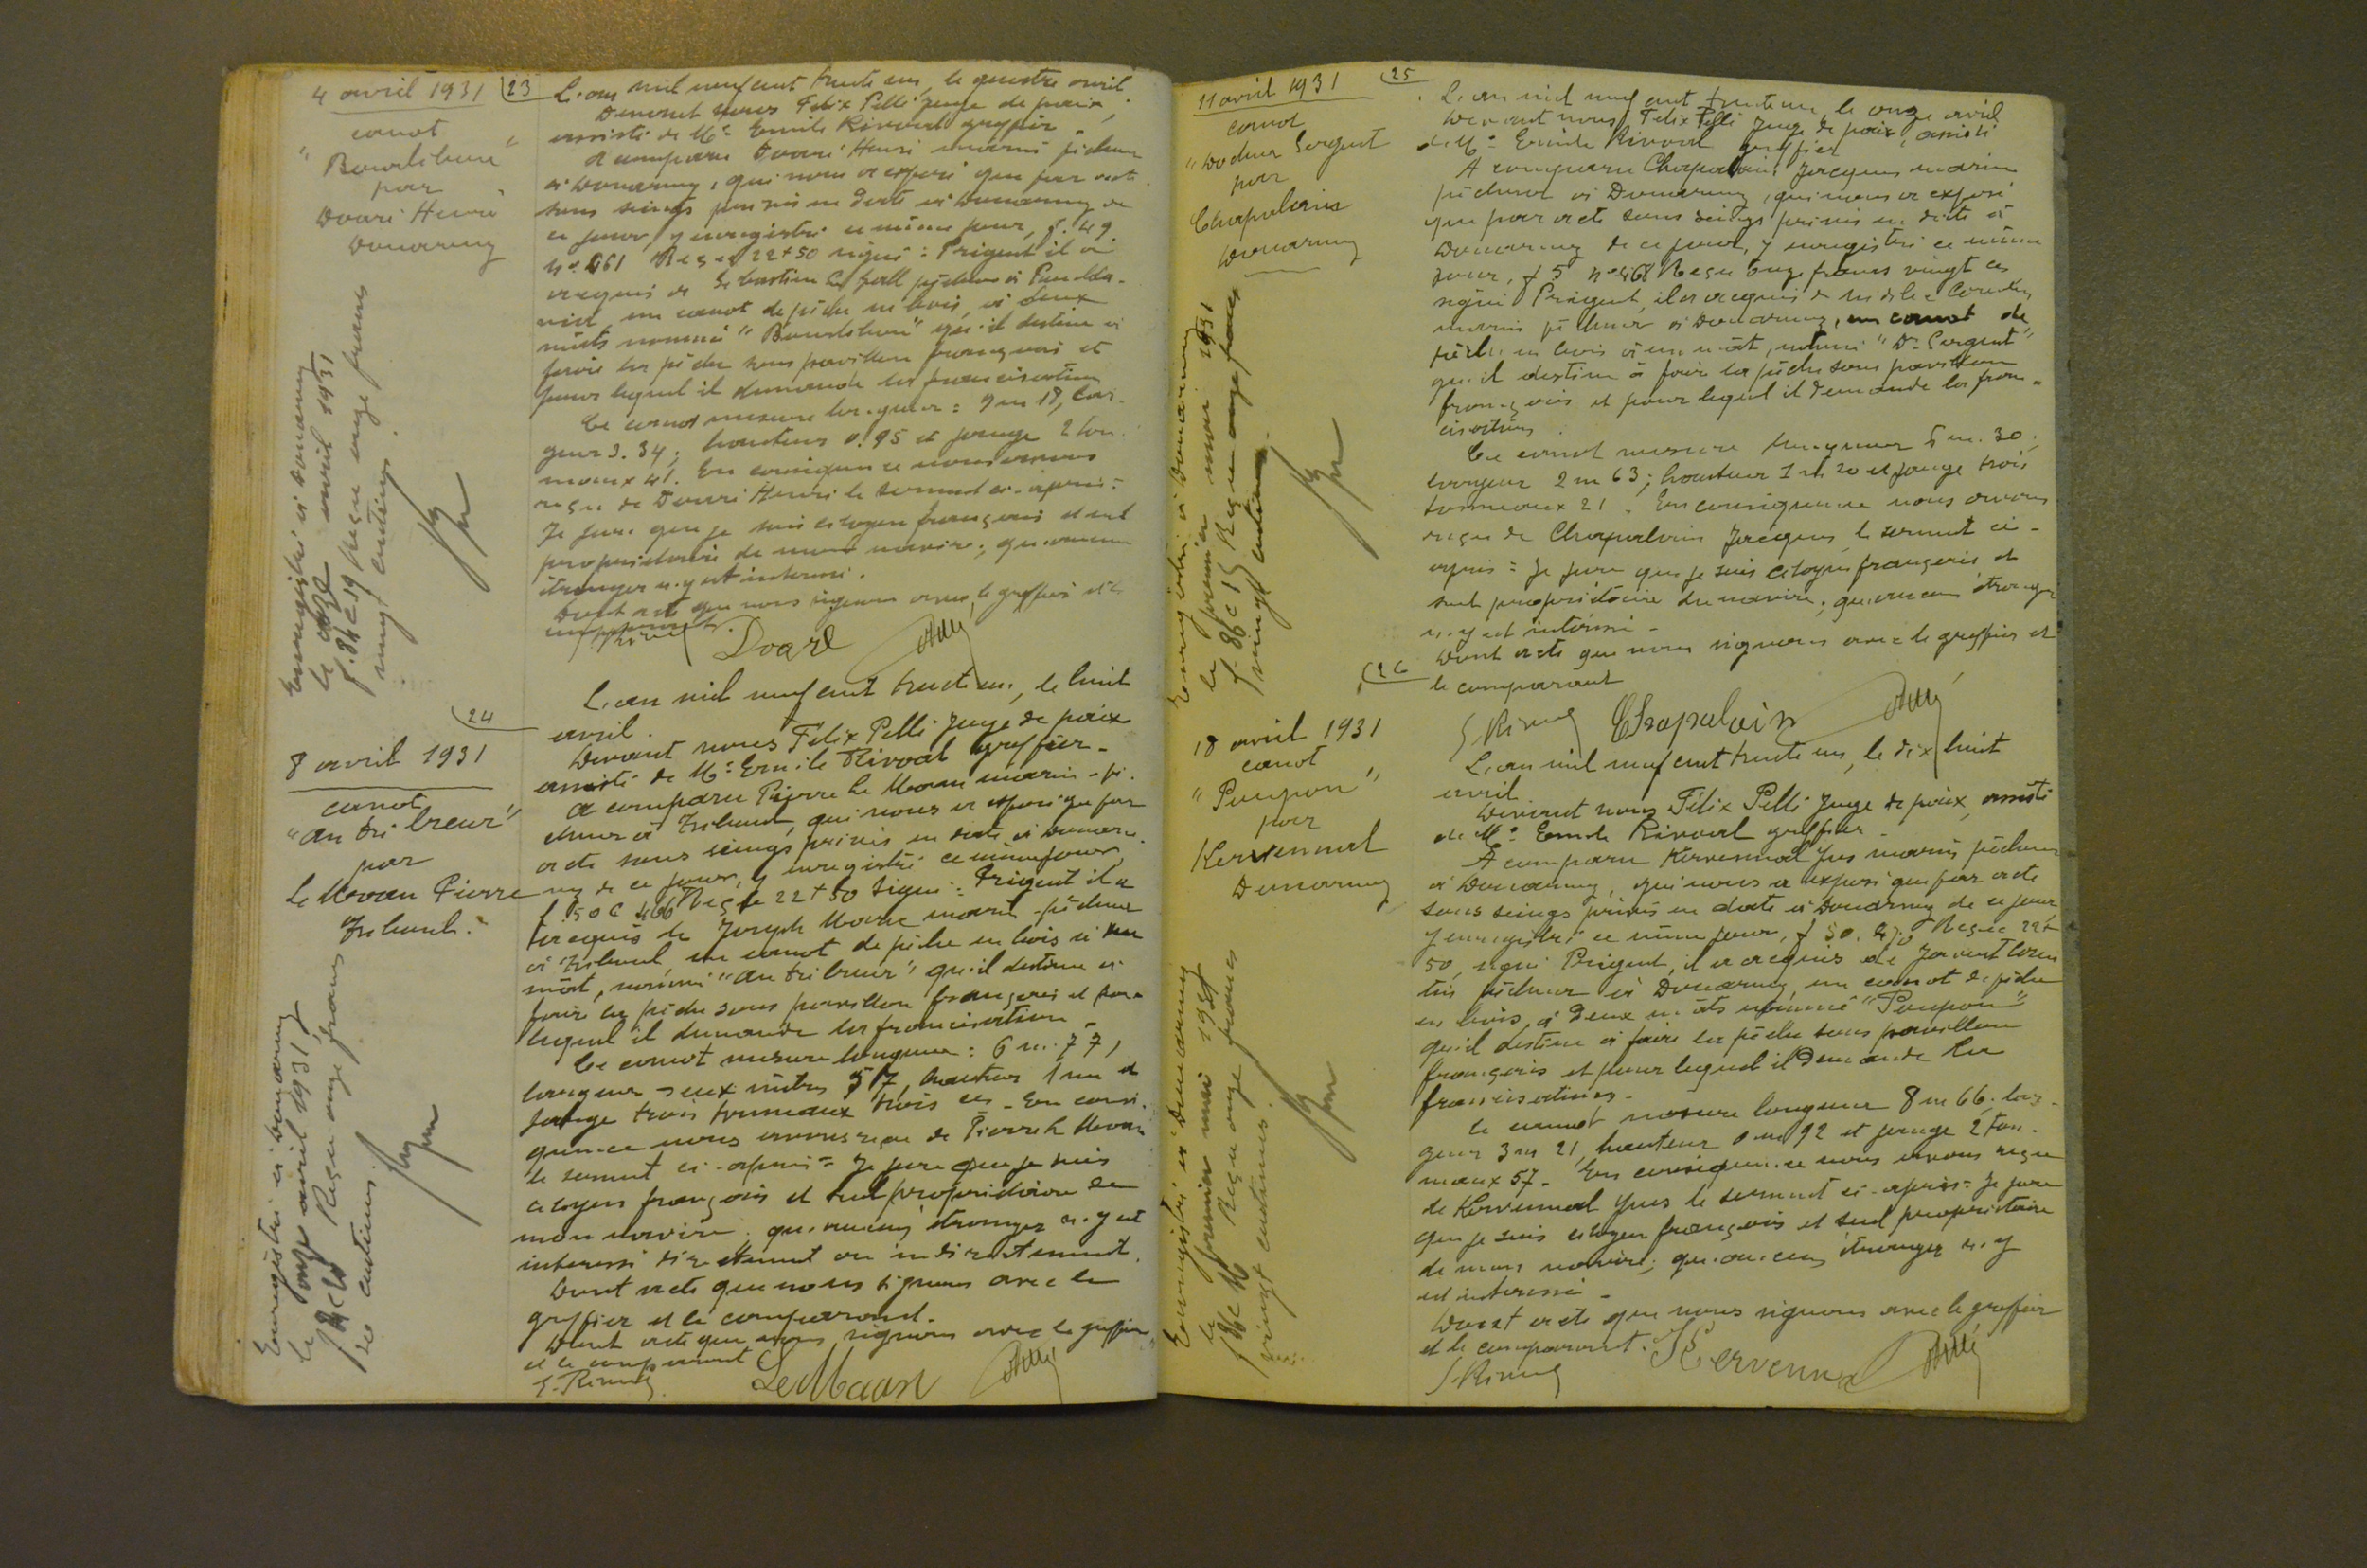 4 avril 1931
canot
"
"
par
Doaré Henri
Douarnenez
Enregistré à Douarnenez
le onze avril 1931
f. 84 c 19 Reçu onze francs
vingt centimes.
23
L'an mil neuf cent trente un, le quatre avril
Devant nous Félix Pelli Juge de paix,
assisté de Me Emile Rivoal greffier
A comparu Doaré Henri marin pêcheur
à Douarnenez, qui nous a exposé que par acte
sous seings privés en date à Douarnenez de
ce jour, y enregistré ce même jour, f. 49
no 461 Reçu 22 + 50 signé : Prigent il a
acquis de Sébastien Le Gall pêcheur à
un canot de pêche en bois, à deux
mâts nommé " " qu'il destine à
faire la pêche sous pavillon français et
pour lequel il demande la francisation
Ce canot mesure longueur : 9 m 18, lar-
geur 3.34 ; hauteur 0.95 et jauge 2 ton-
neaux 41. En conséquence nous avons
reçu de Doaré Henri le serment ci-après :
Je jure que je suis citoyen français et seul
propriétaire de mon navire ; qu'aucun
étranger n'y est intéressé.
Dont acte que nous signons avec le greffier et le
comparant.
E. Rivoal Doaré
24
8 avril 1931
canot
"An tri breur"
par
Le Moan Pierre
Tréboul.
Enregistré à Douarnenez
le onze avril 1931
f 84 c Reçu onze francs
20 centimes
L'an mil neuf cent trente un, le huit
avril.
Devant nous Félix Pelli Juge de paix
assisté de Me Emile Rivoal Greffier -
A comparu Pierre Le Moan marin-pê-
cheur à Tréboul, qui nous a exposé que par
acte sous seings privés en date à Douarne-
nez de ce jour, y enregistré ce même jour
f. 50 c 466 Reçu 22 + 50 Signé : Prigent il a
acquis de Joseph marin-pêcheur
à Tréboul un canot de pêche en bois à un
mât, nommé "An tri breur" qu'il destine à
faire la pêche sous pavillon français et pour
lequel il demande la francisation -
Ce canot mesure longueur : 6 m. 77,
largeur deux mètres 57, hauteur 1 m et
jauge trois tonneaux trois ces - En consé-
quence nous avons reçu de Pierre Le Moan
le serment ci-après = Je jure que je suis
citoyen français et seul propriétaire de
mon navire. qu'aucun étranger n'y est
intéressé directement ou indirectement.
Dont acte que nous signons avec le
greffier et le comparant.
Dont acte que nous signons avec le greffier
et le comparant
E. Rivoal Le Moan
11 avril 1931
canot
"Docteur Sergent
par
Chapalain
Douarnenez
Enregistré à Douarnenez
le premier mai 1931
f. 86 c 15 Reçu onze francs
vingt centimes.
25
L'an mil neuf cent trente un, le onze avril
Devant nous, Félix Pelli Juge de paix, assisté
de Me Emile Rivoal greffier
A comparu Chapalain Jacques marin
pêcheur à Douarnenez, qui nous a exposé
que par acte sous seings privés en date à
Douarnenez de ce jour, y enregistré ce même
jour, f 5 no 468 Reçu onze francs vingt ces
signé Prigent, il a acquis de
marin pêcheur à Douarnenez, un canot de
pêche en bois à un mât, nommé "Dr Sergent"
qu'il destine à faire la pêche sous pavillon
français et pour lequel il demande la fran-
cisation.
Ce canot mesure longueur 6 m. 30 ;
largeur 2 m 63 ; hauteur 1 m 20 et jauge trois
tonneaux 21. En conséquence nous avons
reçu de Chapalain Jacques le serment ci-
après = Je jure que je suis citoyen français et
seul propriétaire du navire ; qu'aucun étranger
n'y est intéressé -
Dont acte que nous signons avec le greffier et
le comparant
E. Rivoal Chapalain
26
18 avril 1931
canot
"Poupon"
par
Kervennal
Douarnenez
Enregistré à Douarnenez
le premier mai 1931
f 86 c 16 Reçu onze francs
vingt centimes.
L'an mil neuf cent trente un, le dix huit
avril
Devant nous Félix Pelli Juge de paix, assisté
de Me Emile Rivoal greffier -
A comparu Kervennal Yves marin pêcheur
à Douarnenez, qui nous a exposé que par acte
sous seings privés en date à Douarnenez de ce jour
y enregistré ce même jour, f 50. Reçu 22 +
50, signé Prigent, il a acquis de
pêcheur à Douarnenez, un canot de pêche
en bois, à deux mâts nommé "Poupon"
qu'il destine à faire la pêche sous pavillon
français et pour lequel il demande la
francisation -
Ce canot mesure longueur 8 m 66, lar-
geur 3 m 21, hauteur 0 m 92 et jauge 2 ton-
neaux 57 - En conséquence nous avons reçu
de Kervennal Yves le serment ci-après = Je jure
que je suis citoyen français et seul propriétaire
de mon navire ; qu'aucun étranger n'y
est intéressé -
Dont acte que nous signons avec le greffier
et le comparant.
E. Rivoal Kervennal